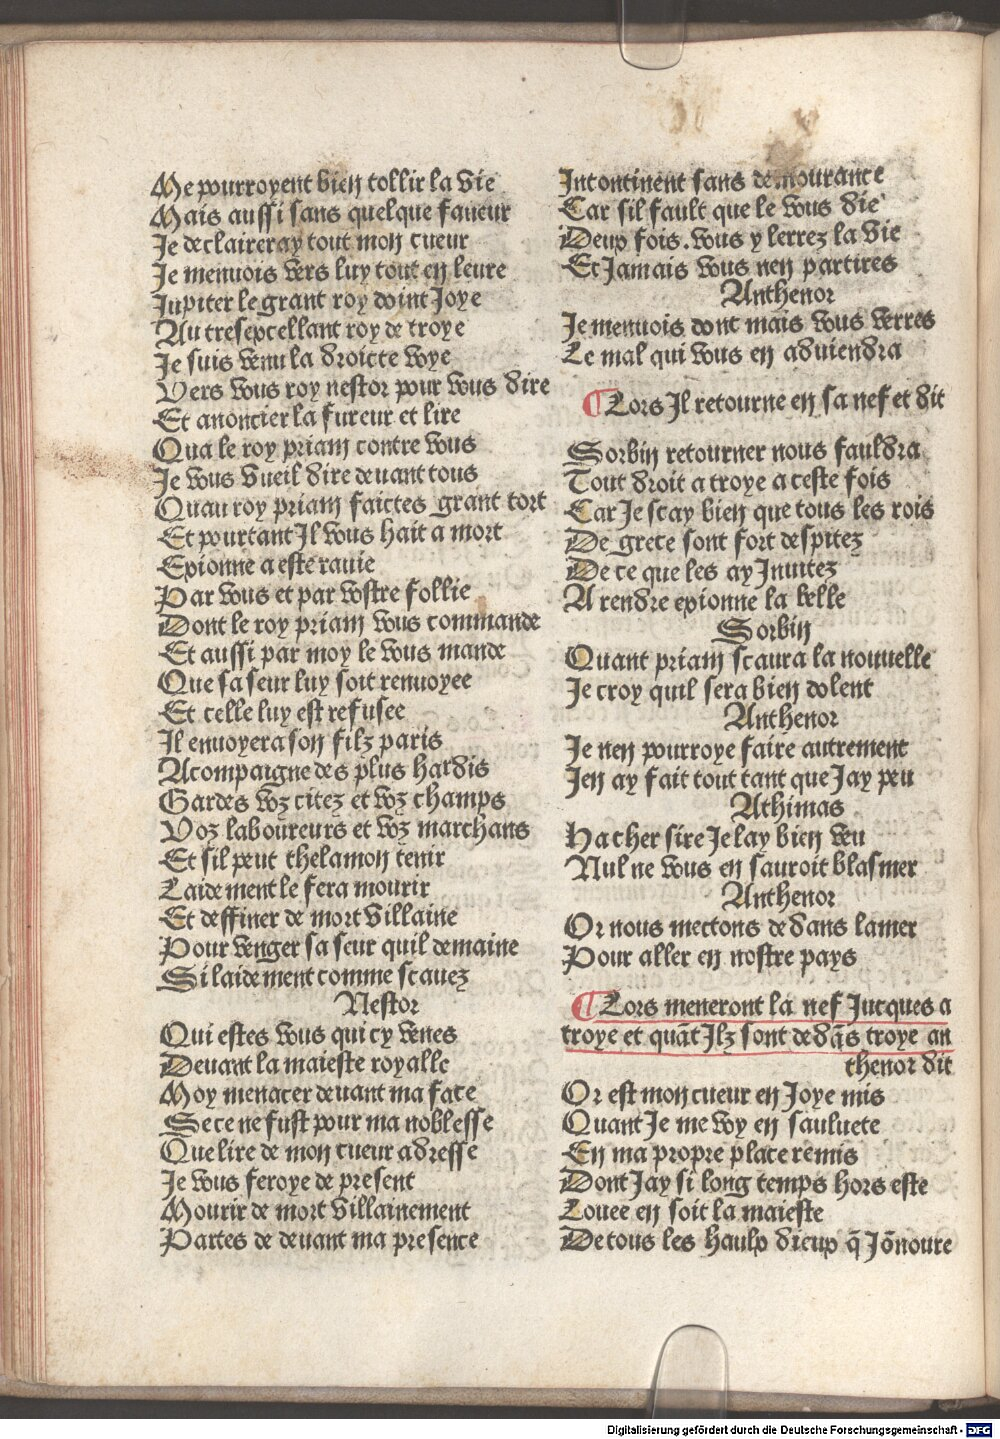 Me pourroyent bien tollir la vie
Mais aussi sans quelque faueur
Je declaireray tout mon cueur
Je menuois vers luy tout en leure
Jupiter le grant roy doint Joye
Au tresexcellant roy de troye
Je suis venu la droicte voye
Vers vous roy nestor pour vous dire
Et anoncier la fureur et lire
Qua le roy priam contre vous
Je vous vueil dire deuant tous
Quau roy priam faictes grant tort
Et pourtant Il vous hait a mort
Exionne a este rauie
Par vous et par vostre follie
Dont le roy priam vous commande
Et aussi par moy le vous mande
Que sa seur luy soit renuoyee
Et celle luy est refusee
Il enuoyera son filz paris
Acompaigne des plus hardis
Gardes voz citez et voz champs
Voz laboureurs et voz marchans
Et sil peut thelamon tenir
Laidement le fera mourir
Et deffiner de mort villaine
Pour venger sa seur quil demaine
Si laidement comme scauez
Nestor
Qui estes vous qui cy venes
Deuant la maieste royalle
Moy menacer deuant ma face
Se ce ne fust pour ma noblesse
Que lire de mon cueur adresse
Je vous feroye de present
Mourir de mort villainement
Partes de deuant ma presence
Incontinent sans demourance
Car sil fault que le vous die
Deux fois. vous y lerrez la vie
Et Jamais vous nen partires
Anthenor
Je menuois dont mais vous verres
Le mal qui vous en aduiendra
¶ Lors Il retourne en sa nef et dit
Sorbin retourner nous fauldra
Tout droit a troye a ceste fois
Car Je scay bien que tous les rois
De grece sont fort despitez
De ce que les ay Inuitez
A rendre exionne la belle
Sorbin
Quant priam scaura la nouuelle
Je croy quil sera bien dolent
Anthenor
Je nen pourroye faire autrement
Jen ay fait tout tant que Jay peu
Athimas
Ha cher sire Je lay bien veu
Nul ne vous en sauroit blasmer
Anthenor
Or nous mectons dedans lamer
Pour aller en nostre pays
¶ Lors meneront la nef Jucques a
troye et quāt Ilz sont dedās troye an
thenor dit
Or est mon cueur en Joye mis
Quant Je me voy en sauluete
En ma propre place remis
Dont Jay si long temps hors este
Louee en soit la maieste
De tous les haulx dieux q̄ Jōnoure
Digitalisierung gefördert durch die Deutsche Forschungsgemeinschaft - DFG